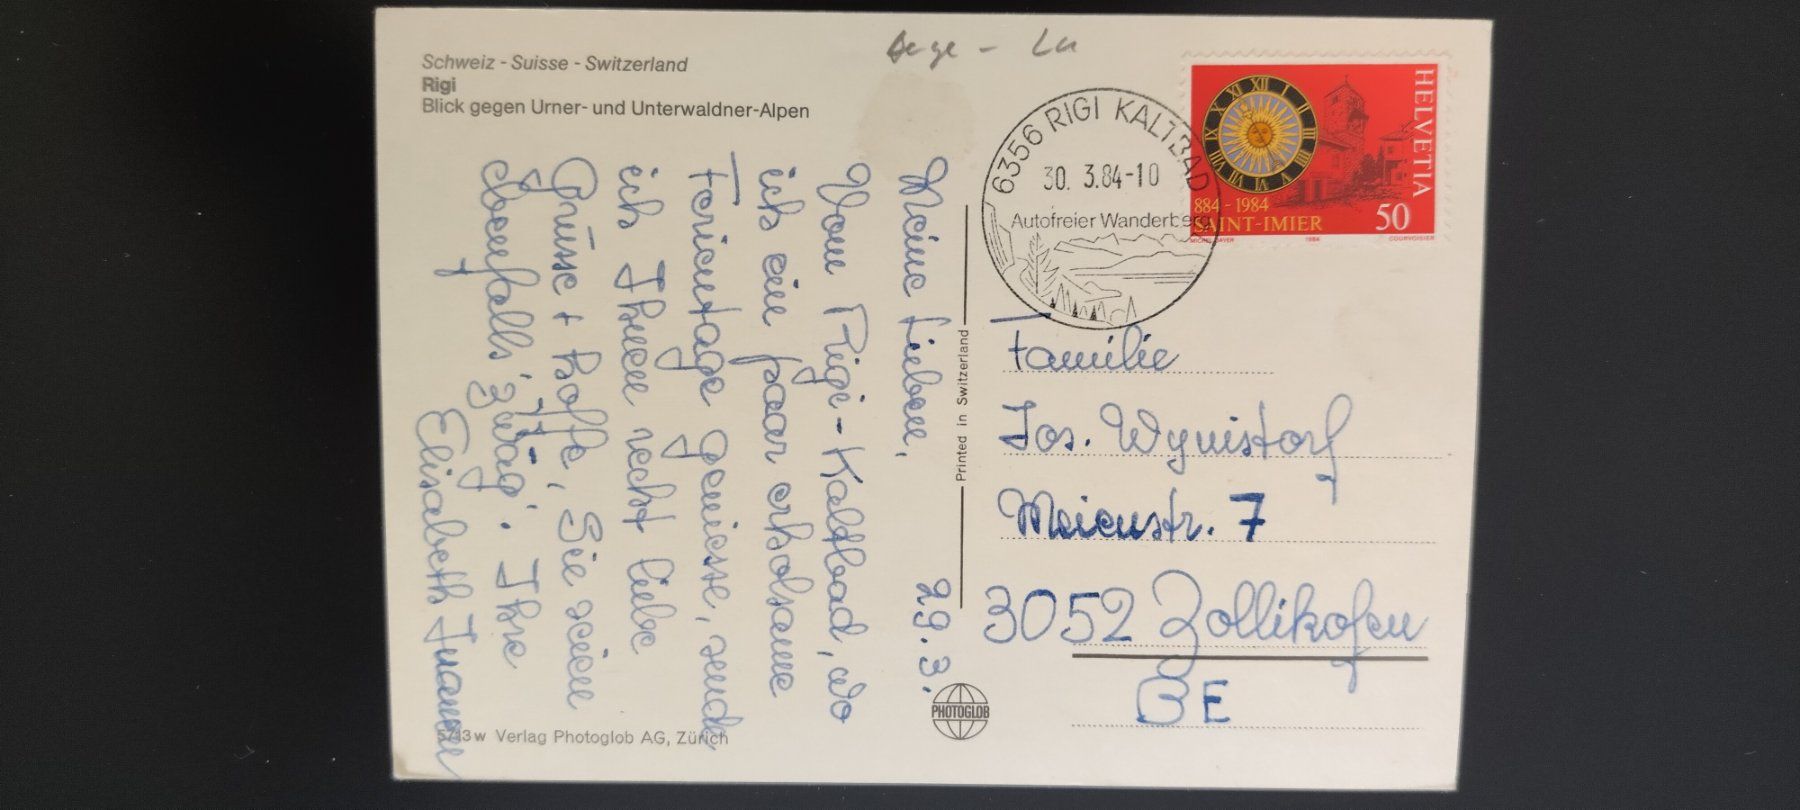 Schweiz - Suisse - Switzerland
Rigi
Blick gegen Urner- und Unterwaldner-Alpen
Meine Lieben, 29.3.
Vom Rigi-Kaltbad, wo
ich ein paar erholsame
Ferientage geniesse, sende
ich Ihnen recht liebe
Grüsse + hoffe, Sie seien
ebenfalls "zwäg". Ihre
Elisabeth
5713w Verlag Photoglob AG, Zürich
Printed in Switzerland
PHOTOGLOB
6356 RIGI KALTBAD
30. 3.84-10
Autofreier Wanderberg
HELVETIA
884 - 1984
SAINT-IMIER
50
1984
COURVOISIER
XII I II III V VI VII VIII IX X XI
Familie
Jos. Wynistorf
Meienstr. 7
3052 Zollikofen
BE